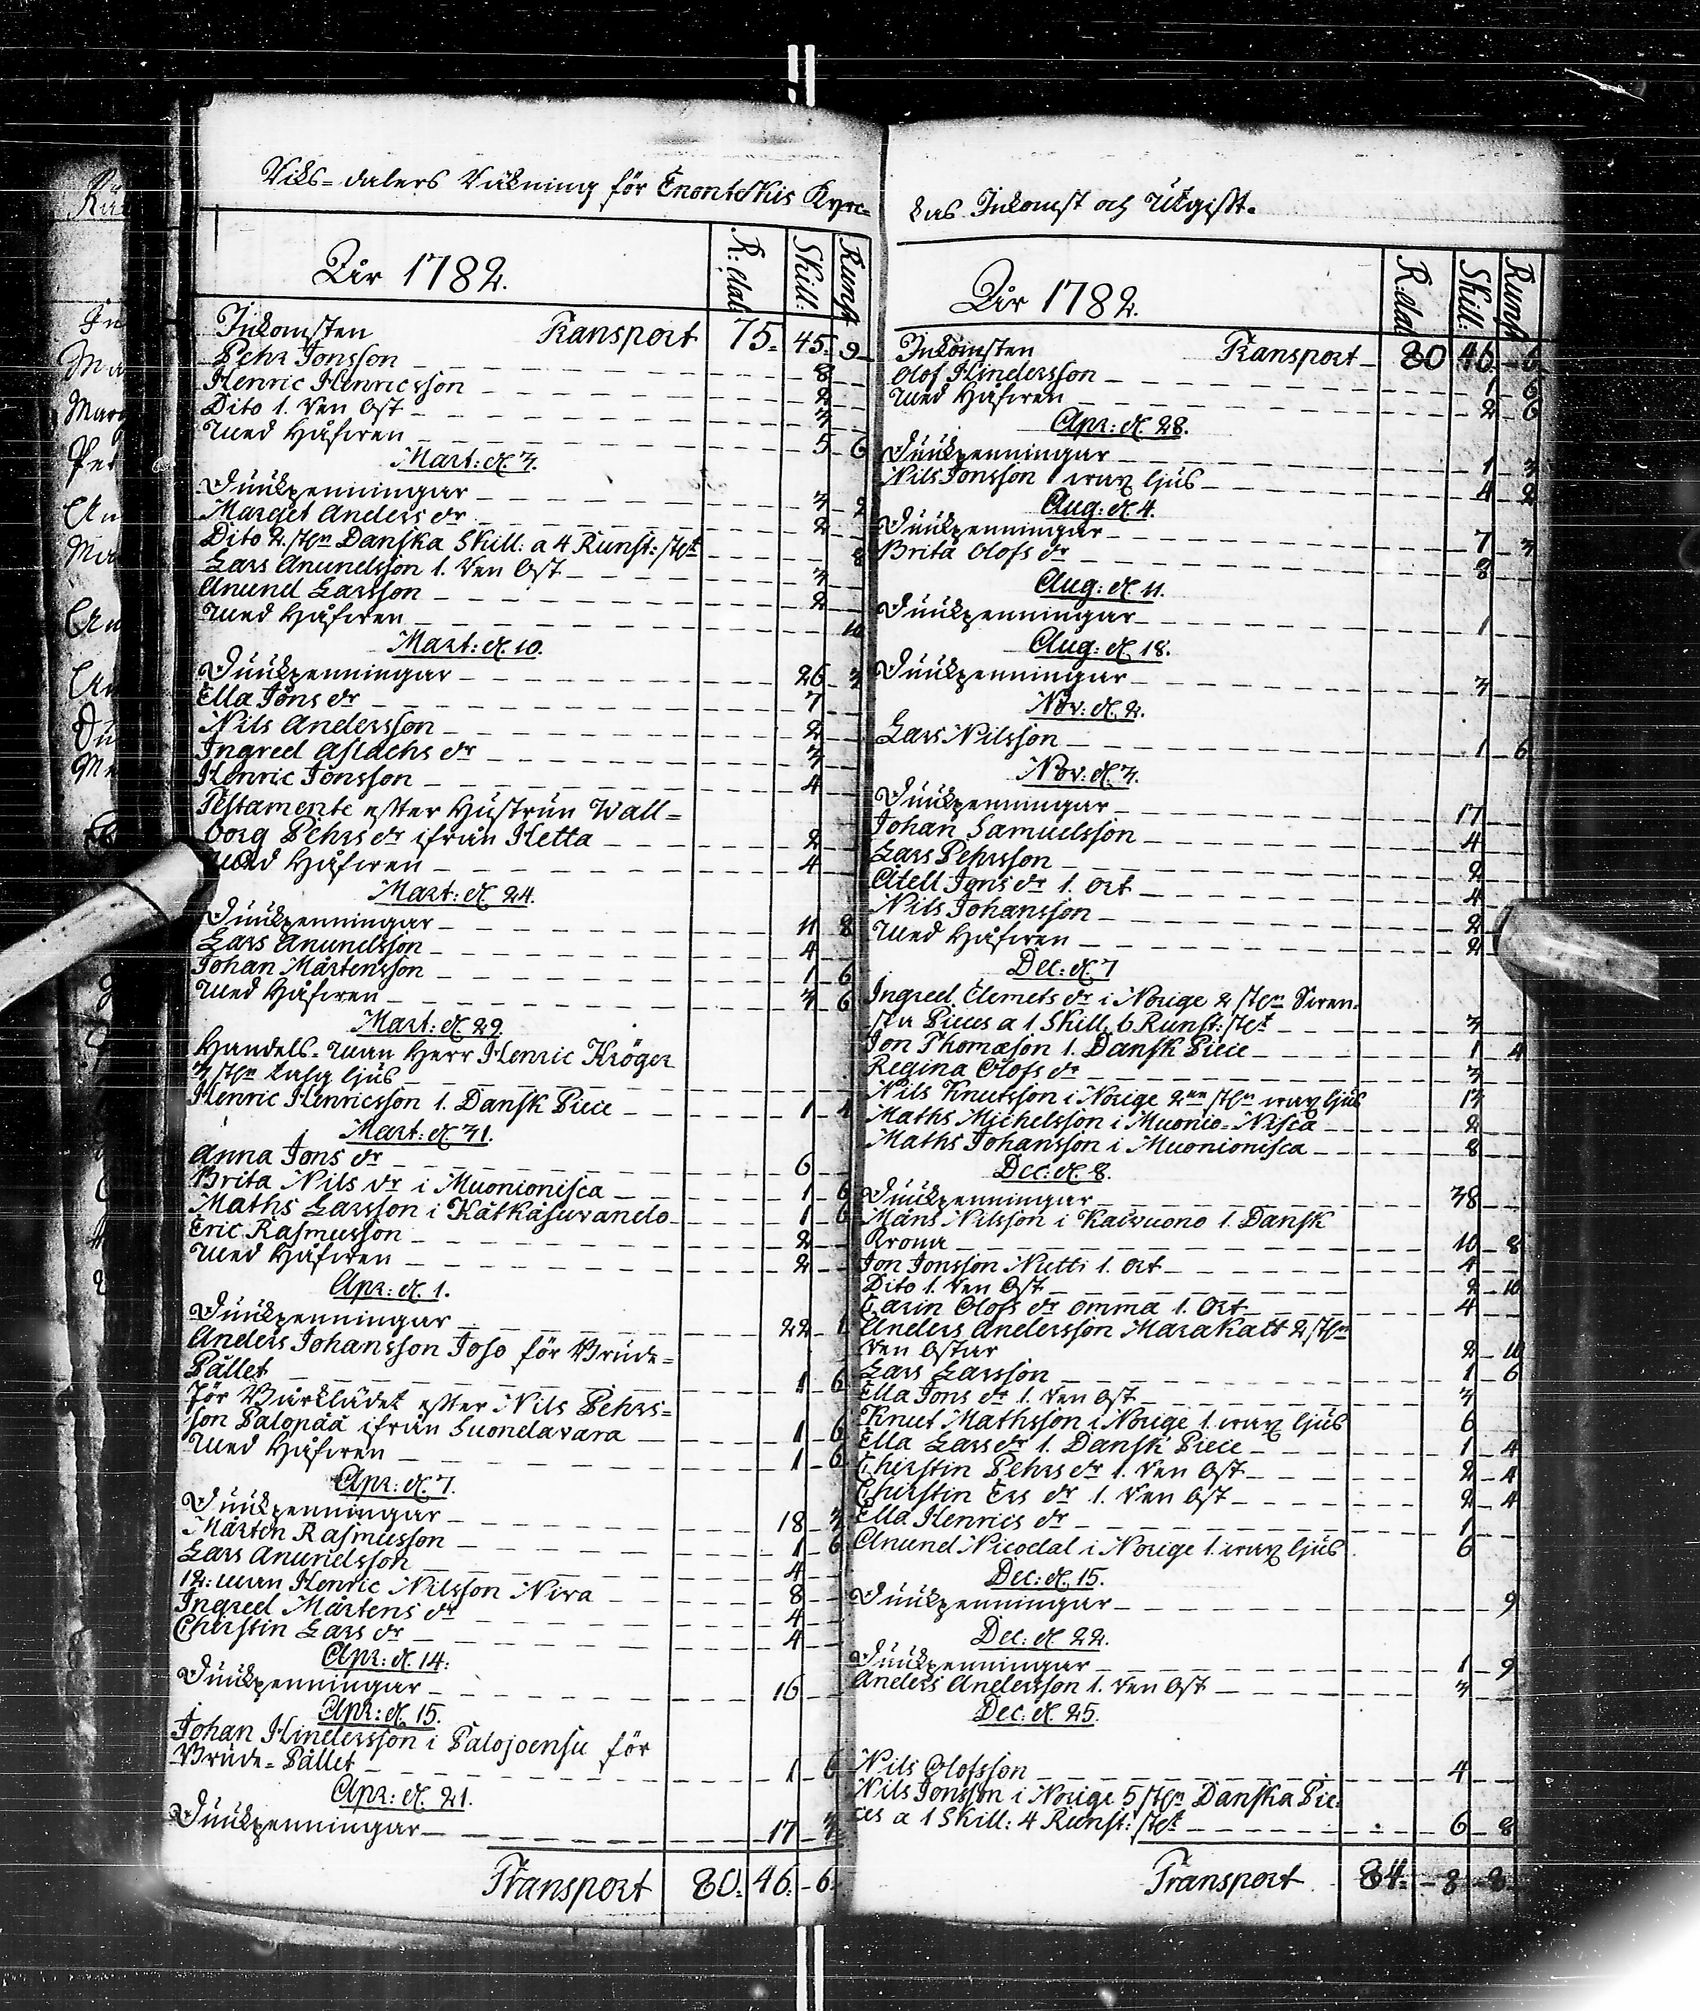 Riks=dalers Räkning för Enontekis Kyrc=
År 1782. R:dal: Skill: Runst
Inkomsten Transport 75. 45. 9
Pehr Jonsson 8
Henric Henricsson 2
Dito 1. Ren Ost 3
Med Håfwen 5 6
Mart: d. 3.
Tiuukpenningar 3 2
Marget Anders dr 2
Dito 2. st:n Danska Skill: a 4 Runst: st:t 8
Lars Anundsson 1. Ren Ost 3
Anund Larsson 2
Med Håfwen 10
Mart: d. 10.
Tiuukpenningar 26 3
Ella Jöns dr 7
Nils Andersson 2
Ingred Aslachs dr 3
Henric Jönsson 4
Testamente efter Hustrun Wall=
borg Pehrs dr ifrån Hetta 2
Med Håfwen 4
Mart: d. 24.
Tiuukpenningar 11 8
Lars Anundsson 4
Johan Mårtensson 1 6
Med Håfwen 3 6
Mart: d. 29.
Handels-Man Herr Henric Kröger
3 st:n talg ljus
Henric Henricsson 1. Dansk Piece 1 4
Mart: d. 31.
Anna Jons dr 6
Brita Nils dr i Muonionisca 1 6
Maths Larsson i Kätkäsuvando 1 6
Eric Rasmusson 2
Med Håfwen 2
Apr: d. 1.
Tiuukpenningar 22 1
Anders Johansson Joso för Brude=
Pället 1 6
För Bårklädet efter Nils Pehrs=
son Palopää ifrån Suondavara 1 6
Med Håfwen 1 6
Apr: d. 7.
Tiuukpenningar 18 3
Mårten Rasmusson 1 6
Lars Anundsson 4
12: Man Henric Nilsson Niva 8
Ingred Mårtens dr 4
Cherstin Lars dr 4
Apr: d. 14.
Tiuukpenningar 16
Apr: d. 15.
Johan Hindersson i Palojoensu för
Brude=Pället 1 6
Apr: d. 21.
Tiuukpenningar 17 3
Transport 80. 46. 6
kas Inkomst och Utgift.
År 1782. R.dal Skill: Runst
Inkomsten Transport 80 46 6
Olof Hindersson 1 6
Med Håfwen 2 6
Apr: d. 28.
Tiuukpenningar 1 3
Nils Jonsson 1 wax ljus 4 2
Aug: d. 4.
Tiuukpenningar 7 3
Brita Olofs dr 8
Aug: d. 11.
Tiuukpenningar 1
Aug: d. 18.
Tiuukpenningar 3
Nov: d. 2.
Lars Nilsson 1 6
Nov: d. 3.
Tiuukpenningar 17
Johan Samuelsson 4
Lars Pehrsson 2
Atell Jons dr 1. Ort 4
Nils Johansson 2
Med Håfwen 2
Dec: d. 7
Ingred Clemets dr i Norige 2 st:n Swen-
ska Pieces a 1 Skill. 6 Runst: st:t 3
Jon Thomæson 1. Dansk Piece 1 4
Regina Olofs dr 3
Nils Knutsson i Norige 2ne st:n wax ljus 13
Maths Michelsson i Muonio=Nisca 2
Maths Johansson i Muonionisca 8
Dec: d. 8.
Tiuukpenningar 38
Måns Nilsson i Kaivuono 1. Dansk
Krona 10 8
Jon Jonsson Nutti 1. Ort 4
Dito 1. Ren Ost 2 10
Carin Olofs dr Omma 1. Ort 4
Anders Andersson Marakatt 2 st:n
Ren Ostar 2 10
Lars Larsson 1 6
Ella Jons dr 1. Ren Ost 3
Knut Mathsson i Norige 1. wax ljus 6
Ella Lars dr 1. Dansk Piece 1 4
Cherstin Pehrs dr 1. Ren Ost 2 4
Cherstin Ers dr 1. Ren Ost 2 4
Ella Henrics dr 1
Anund Nicodal i Norige 1. wax ljus 6
Dec: d. 15.
Tiuukpenningar 9
Dec: d. 22.
Tiuukpenningar 1 9
Anders Andersson 1. Ren Ost 3
Dec: d. 25.
Nils Olofsson 4
Nils Jonsson i Norige 5 st:n Danska Pie-
ces a 1 Skill: 4 Runst: st:t 6 8
Transport 84. 8 8